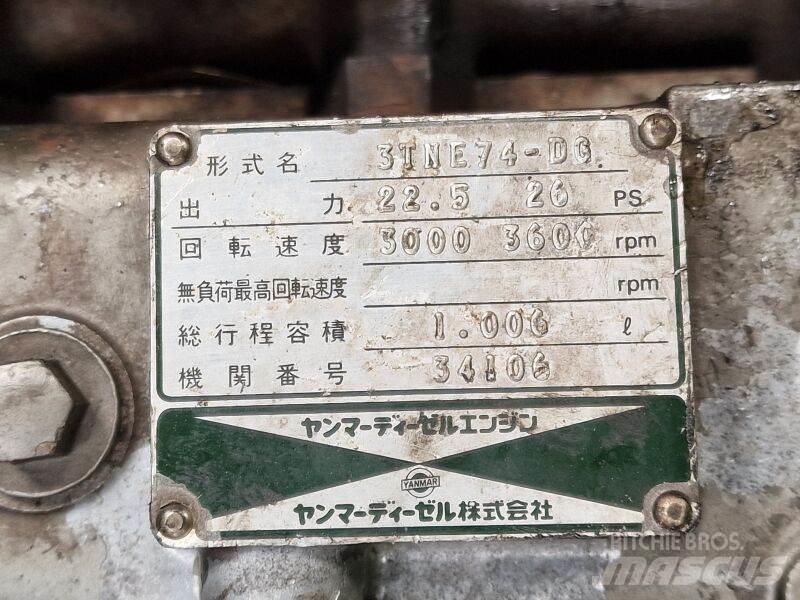 形式名 3TNE74-DG
出力 22.5 26 PS
回転速度 3000 3600 rpm
無負荷最高回転速度 rpm
総行程容積 1.006 ℓ
機関番号 34106
ヤンマーディーゼルエンジン
YANMAR
ヤンマーディーゼル株式会社
RITCHIE BROS.
MASCUS